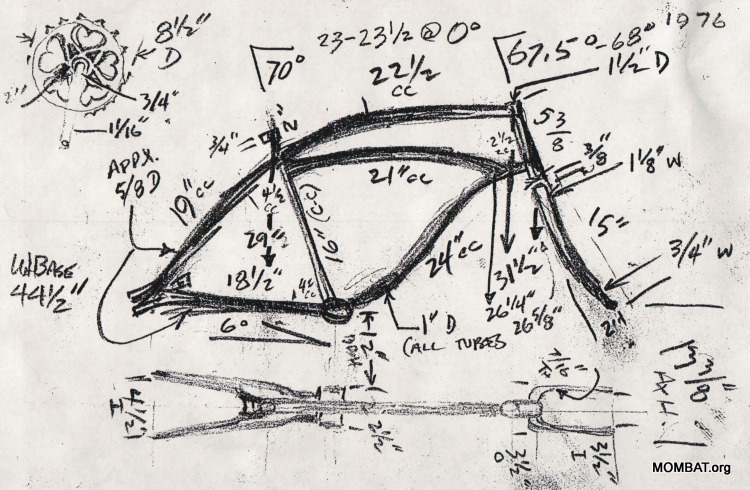 1976
8 1/2"
D
3/4"
1 1/16"
70°
23-23 1/2 @ 0°
22 1/2
cc
67.5°-68°
1 1/2" D
3/4"
2"
5 3/8
3/8"
1 1/8" W
APPX.
5/8 D
19" cc
21" cc
2 1/2
cc
4 1/2
cc
16" (cc)
15"
29"
24" cc
31 1/2"
3/4" W
W/BASE
44 1/2"
18 1/2"
4" cc
26 1/4"
26 5/8"
2"
6°
1" D
(ALL TUBES)
12"
2 1/2"
3 1/2"
I
MOMBAT.org